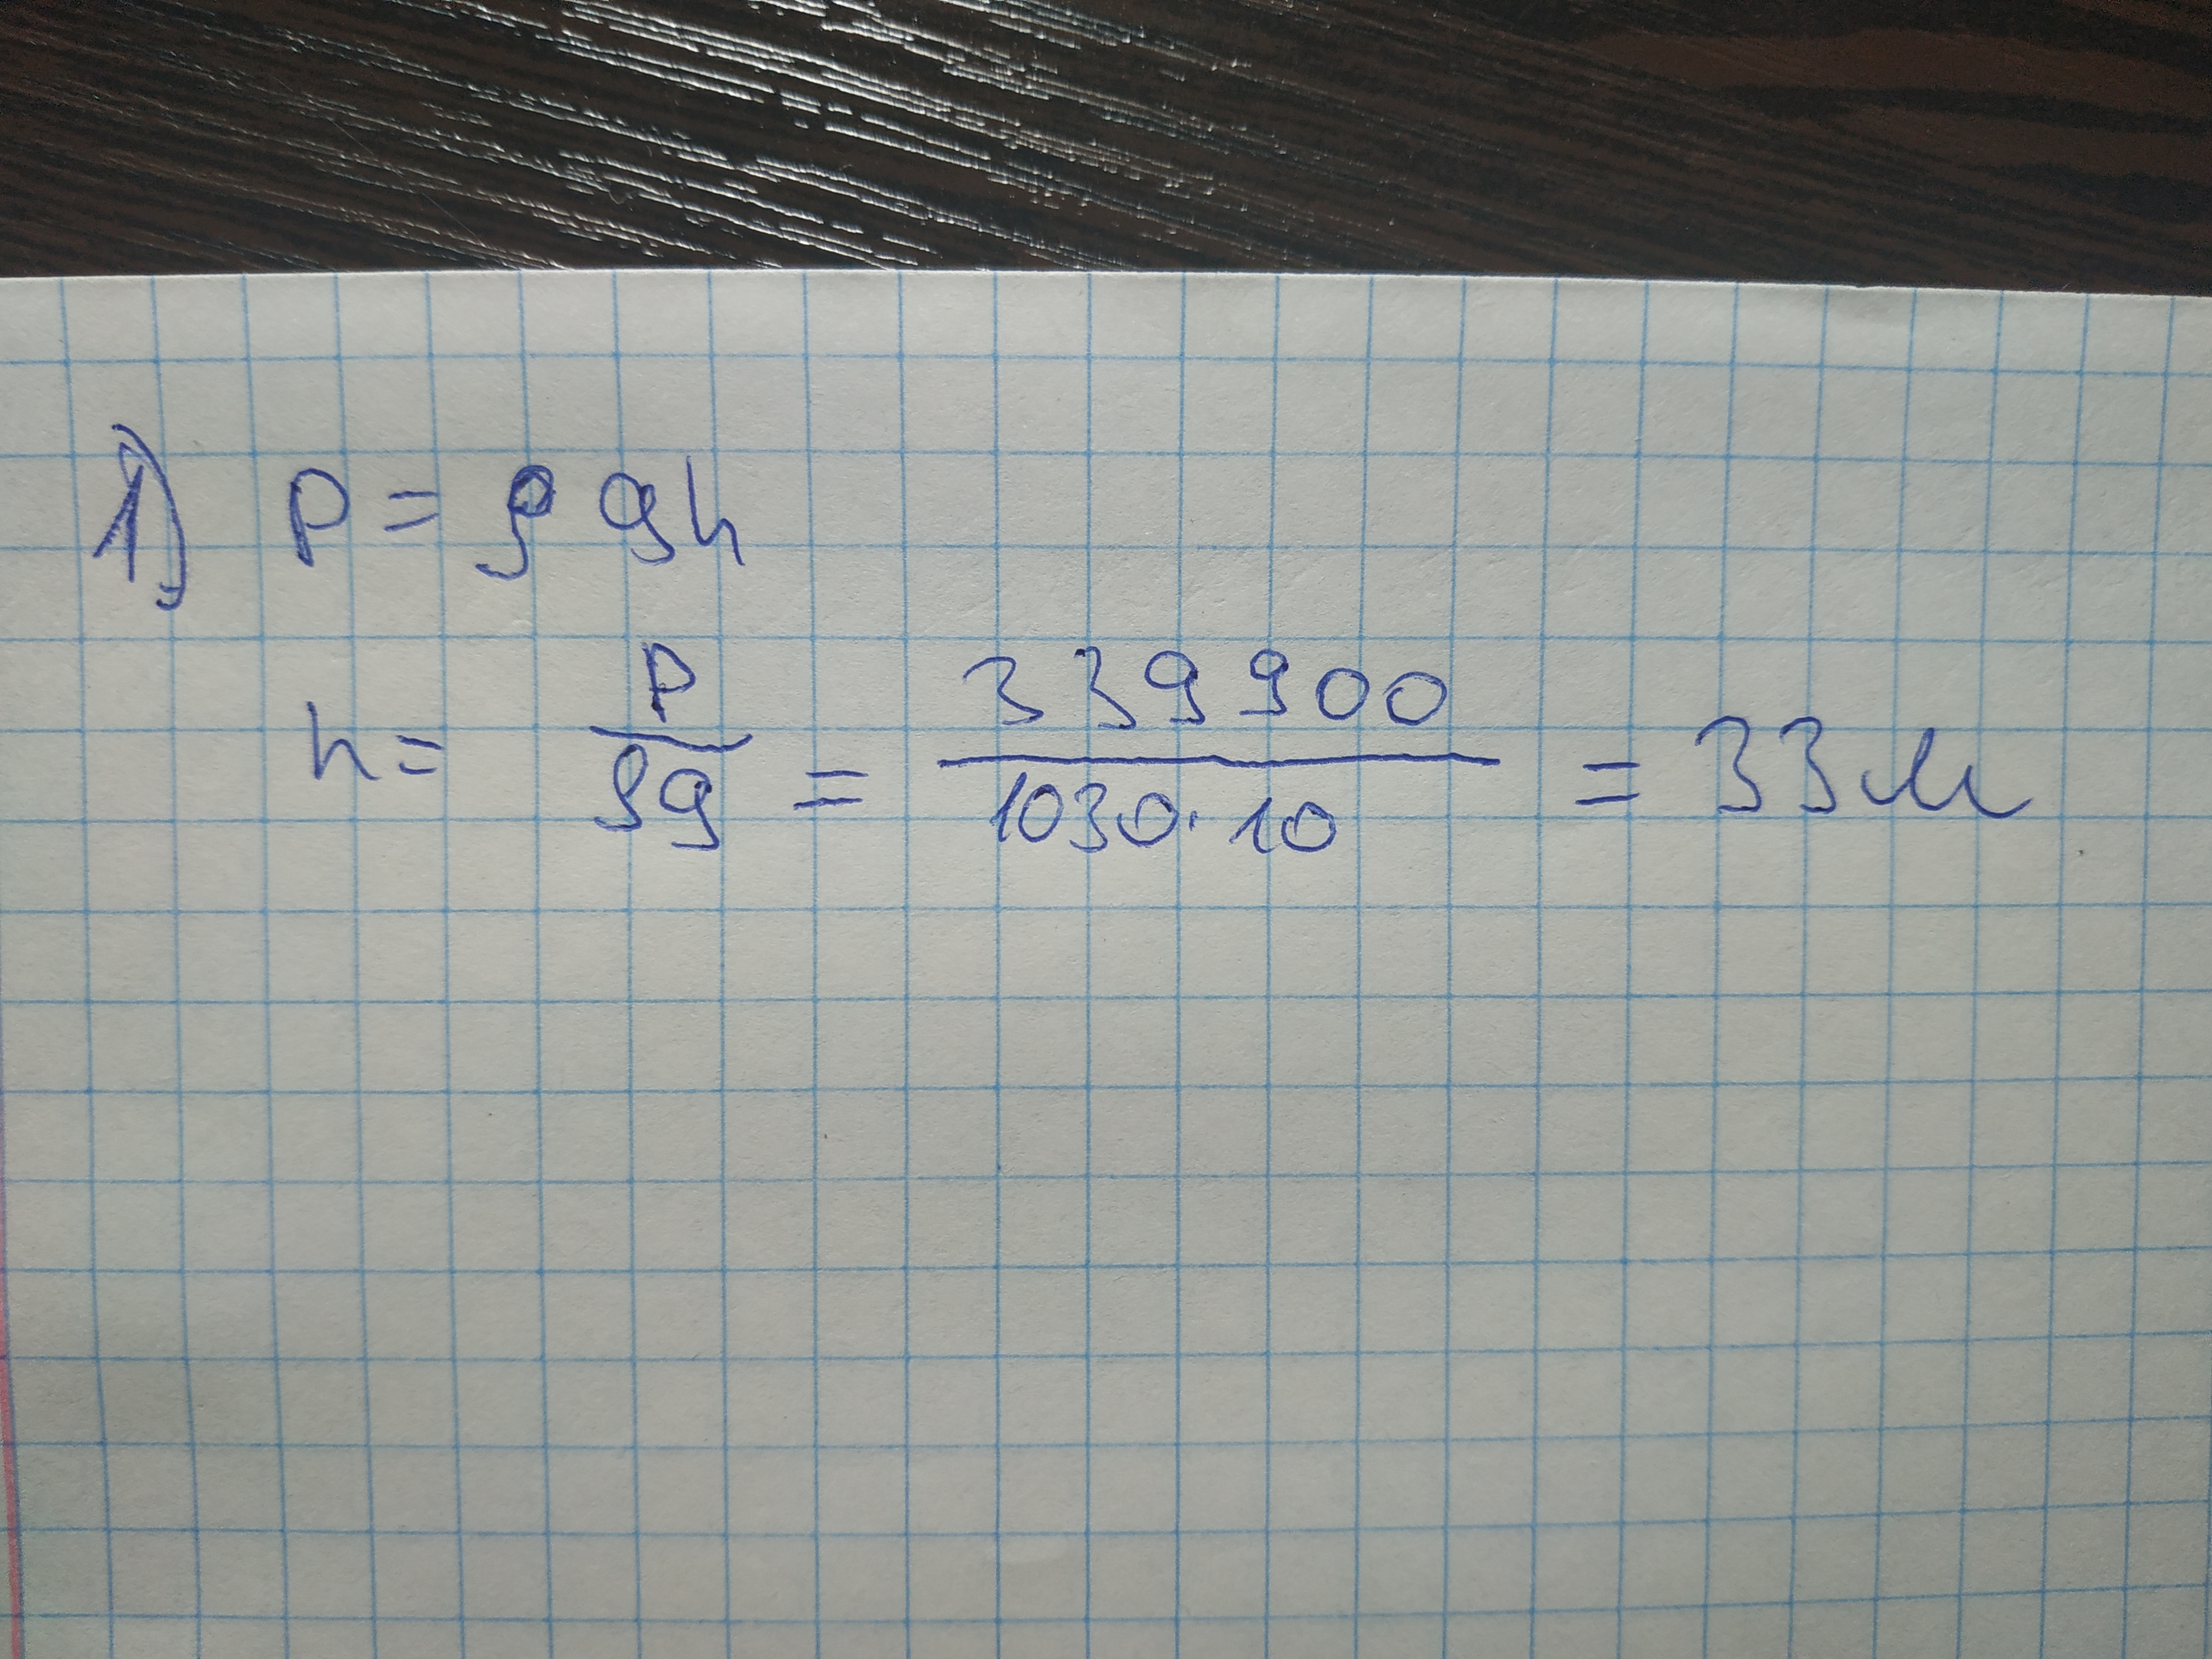 1) P = ρgh
h = P/ρg = 339900/1030·10 = 33м